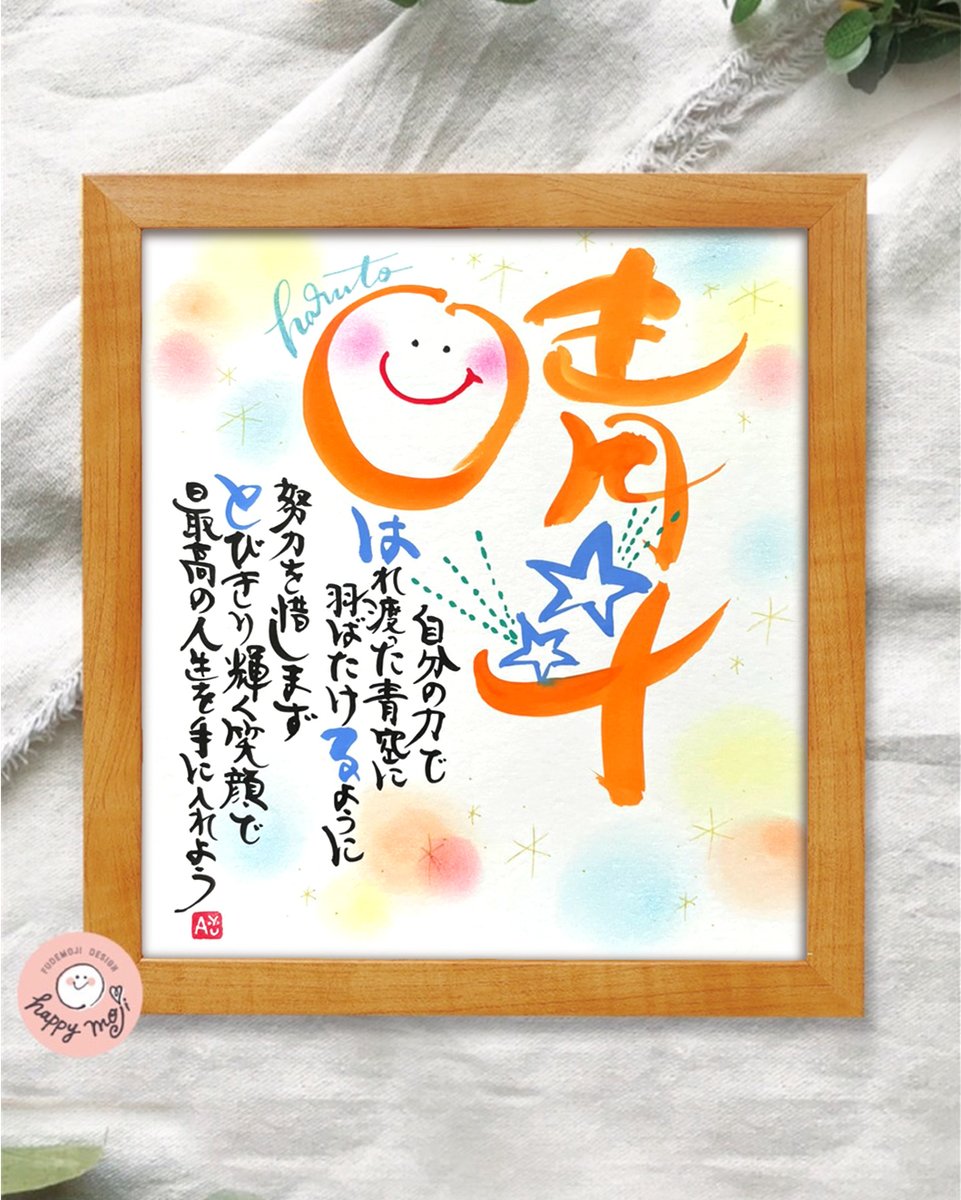 haruto
晴斗
自分の力で
はれ渡った青空に
羽ばたけるように
努力を惜しまず
とびきり輝く笑顔で
最高の人生を手に入れよう
AYU
FUDEMOJI DESIGN
happy moji